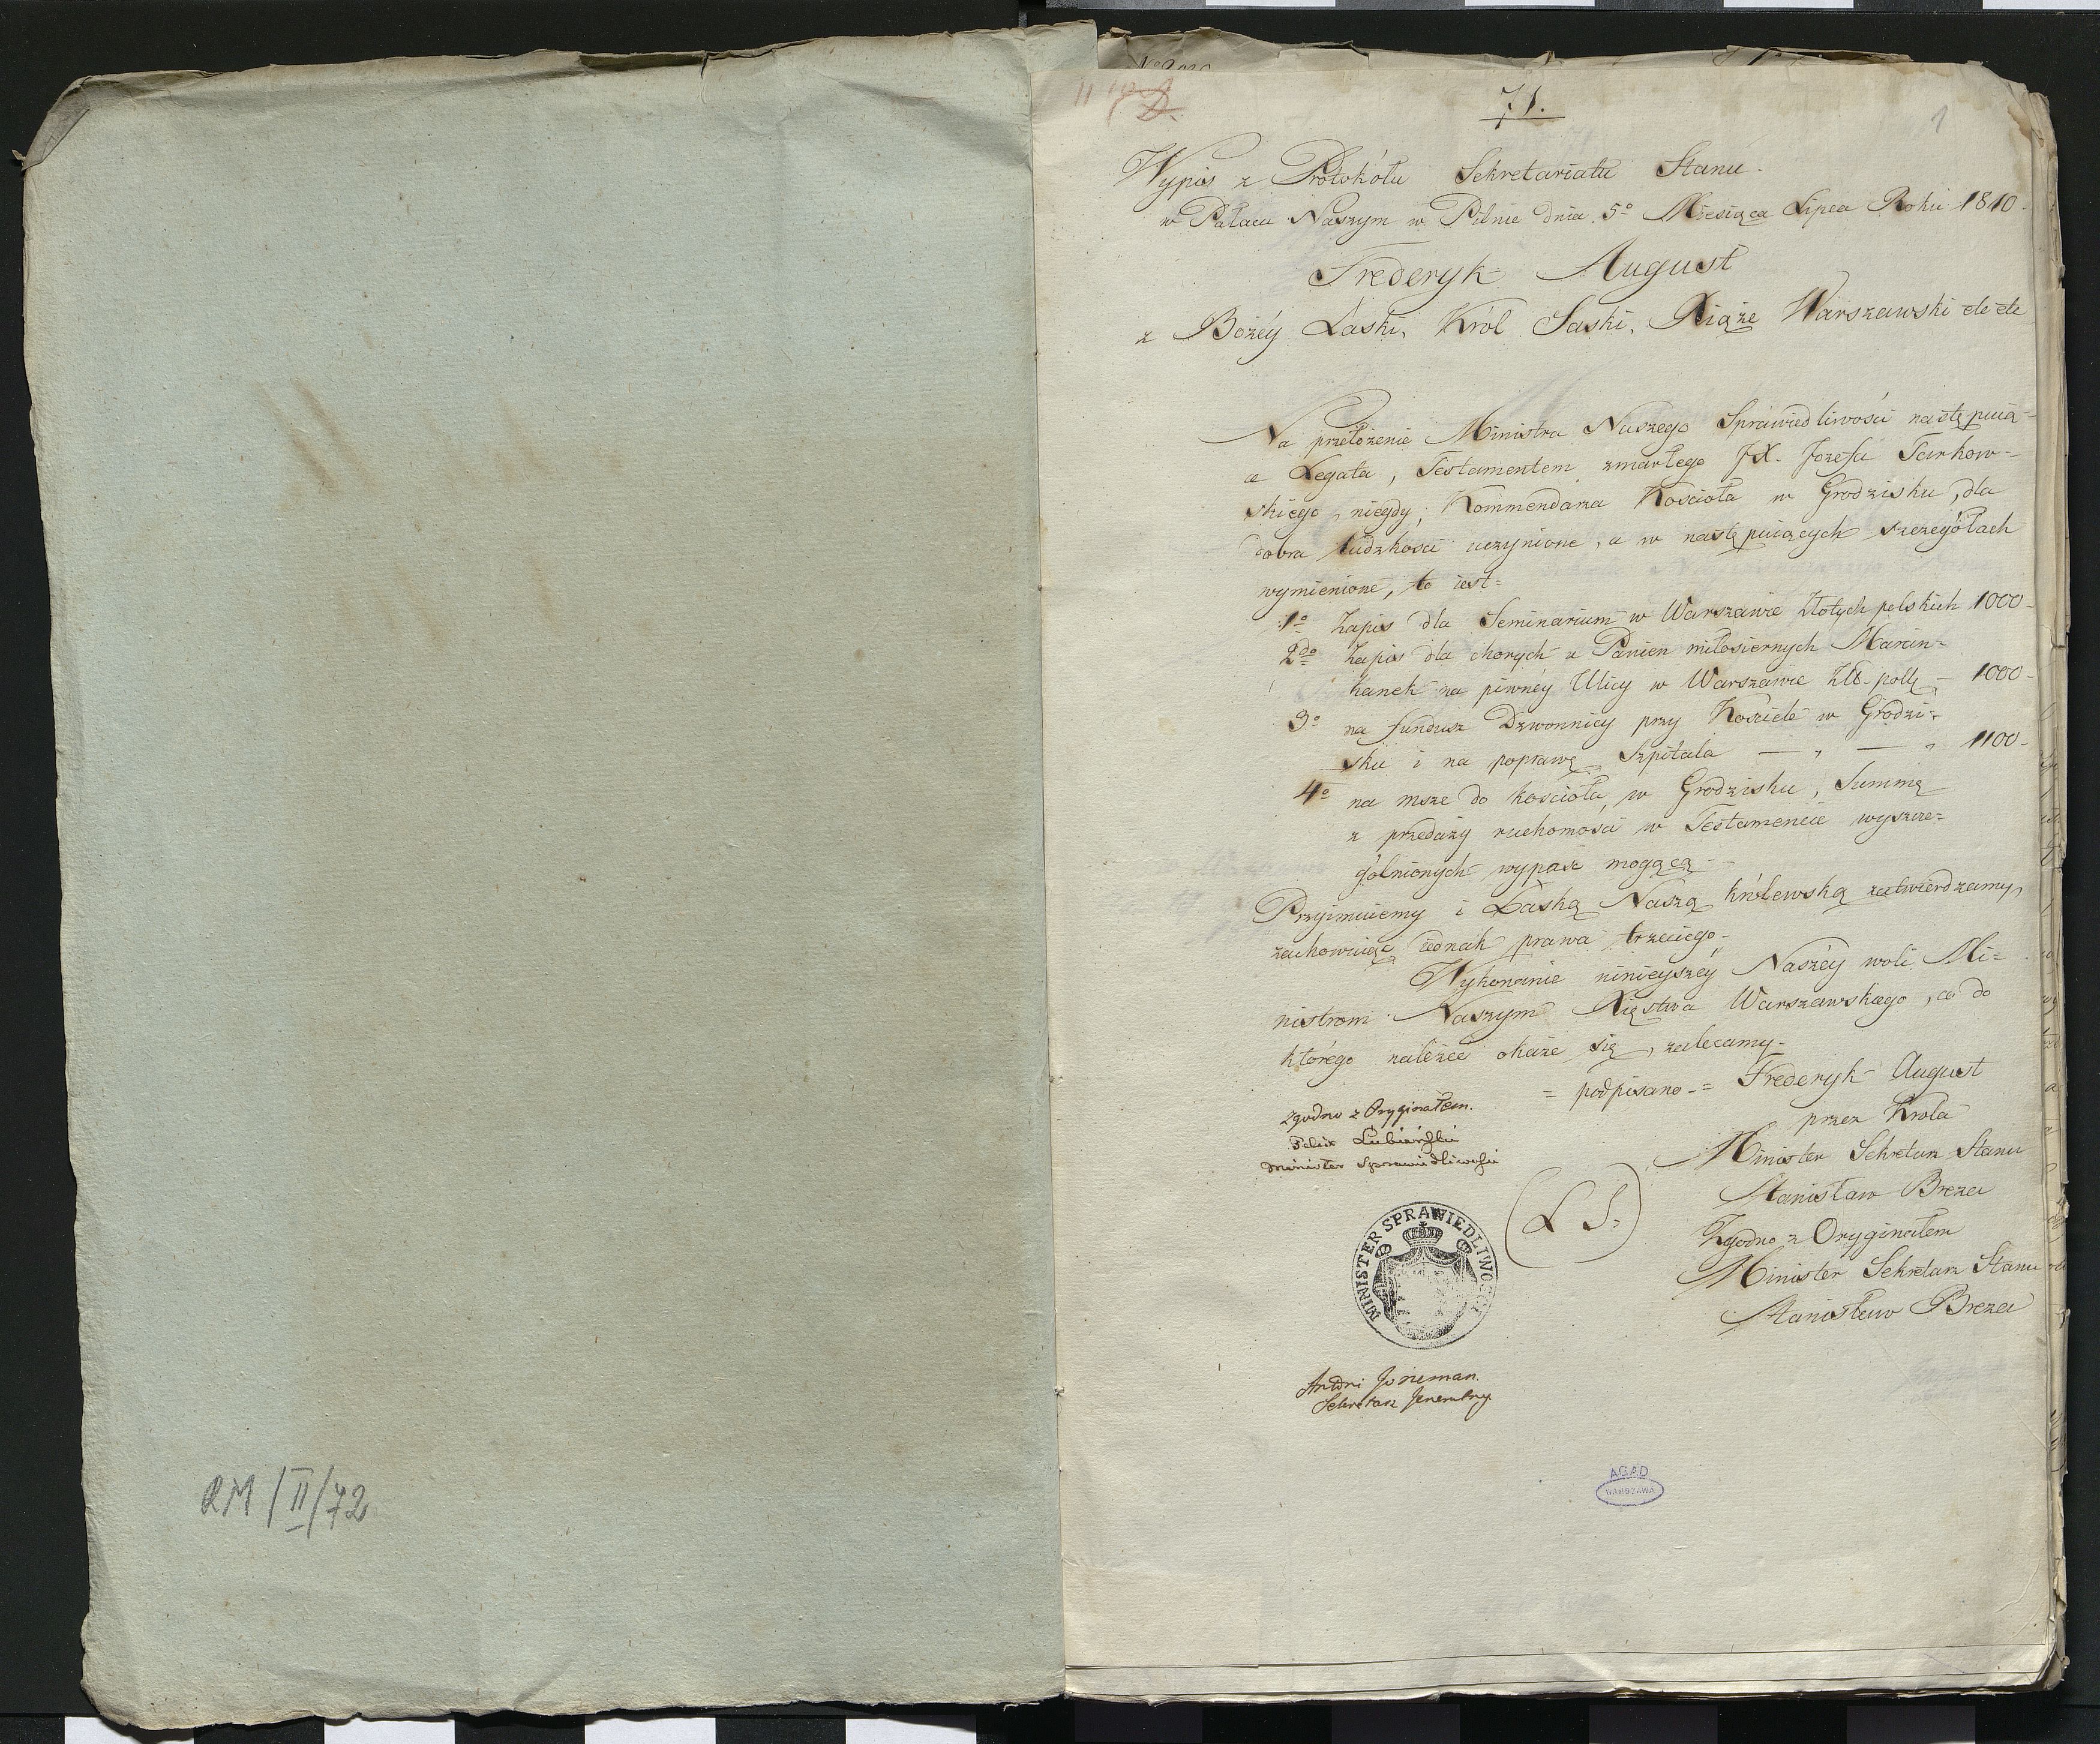 RM/II/72
71.
1
Wypis z Protokółu Sekretariatu Stanu.
w Pałacu Naszym w Pilnie dnia 5º Miesiąca Lipca Roku 1810.
Frederyk August
z Bożéy Łaski, Król Saski, Xiąże Warszawski etc etc
Na przełożenie Ministra Naszego Sprawiedliwości następuią-
ce Legata, Testamentem zmarłego JX. Jozefa Tarkow-
skiego niegdy, Kommendarza Kościoła w Grodzisku, dla
dobra ludzkości uczynione, a w następuiących szczegółach
wymienione, to iest=
1º Zapis dla Seminarium w Warszawie Złotych polskich 1000-
2do Zapis dla chorych u Panien miłosiernych Marcin-
kanek na piwnéy Ulicy w Warszawie Złt. polls - 1000-
3º na fundusz Dzwonnicy przy Kościele w Grodzi-
sku i na poprawę Szpitala — „ — „ 1100-
4º na msze do kościoła w Grodzisku, Summę
z przedaży ruchomości w Testamencie wyszcze-
gólnionych wypaść mogącą-
Przyimuiemy i Łaską Naszą królewską zatwierdzamy,
zachowuiąc iednak prawa trzeciego.-
Wykonanie ninieyszéy Naszéy woli Mi-
nistrom Naszym Xięstwa Warszawskiego, co do
którego należeć okaże się, zalecamy-
= podpisano -= Frederyk August
przez Krola
Minister Sekretarz Stanu
Stanisław Breza
Zgodno z Oryginałem
Minister Sekretarz Stanu
Stanisław Breza
(L S.)
Zgodno z Oryginałem.
Felix Łubieński
Minister Sprawiedliwości
MINISTER SPRAWIEDLIWOŚCI
Sekretarz Jeneralny.
AGAD
WARSZAWA